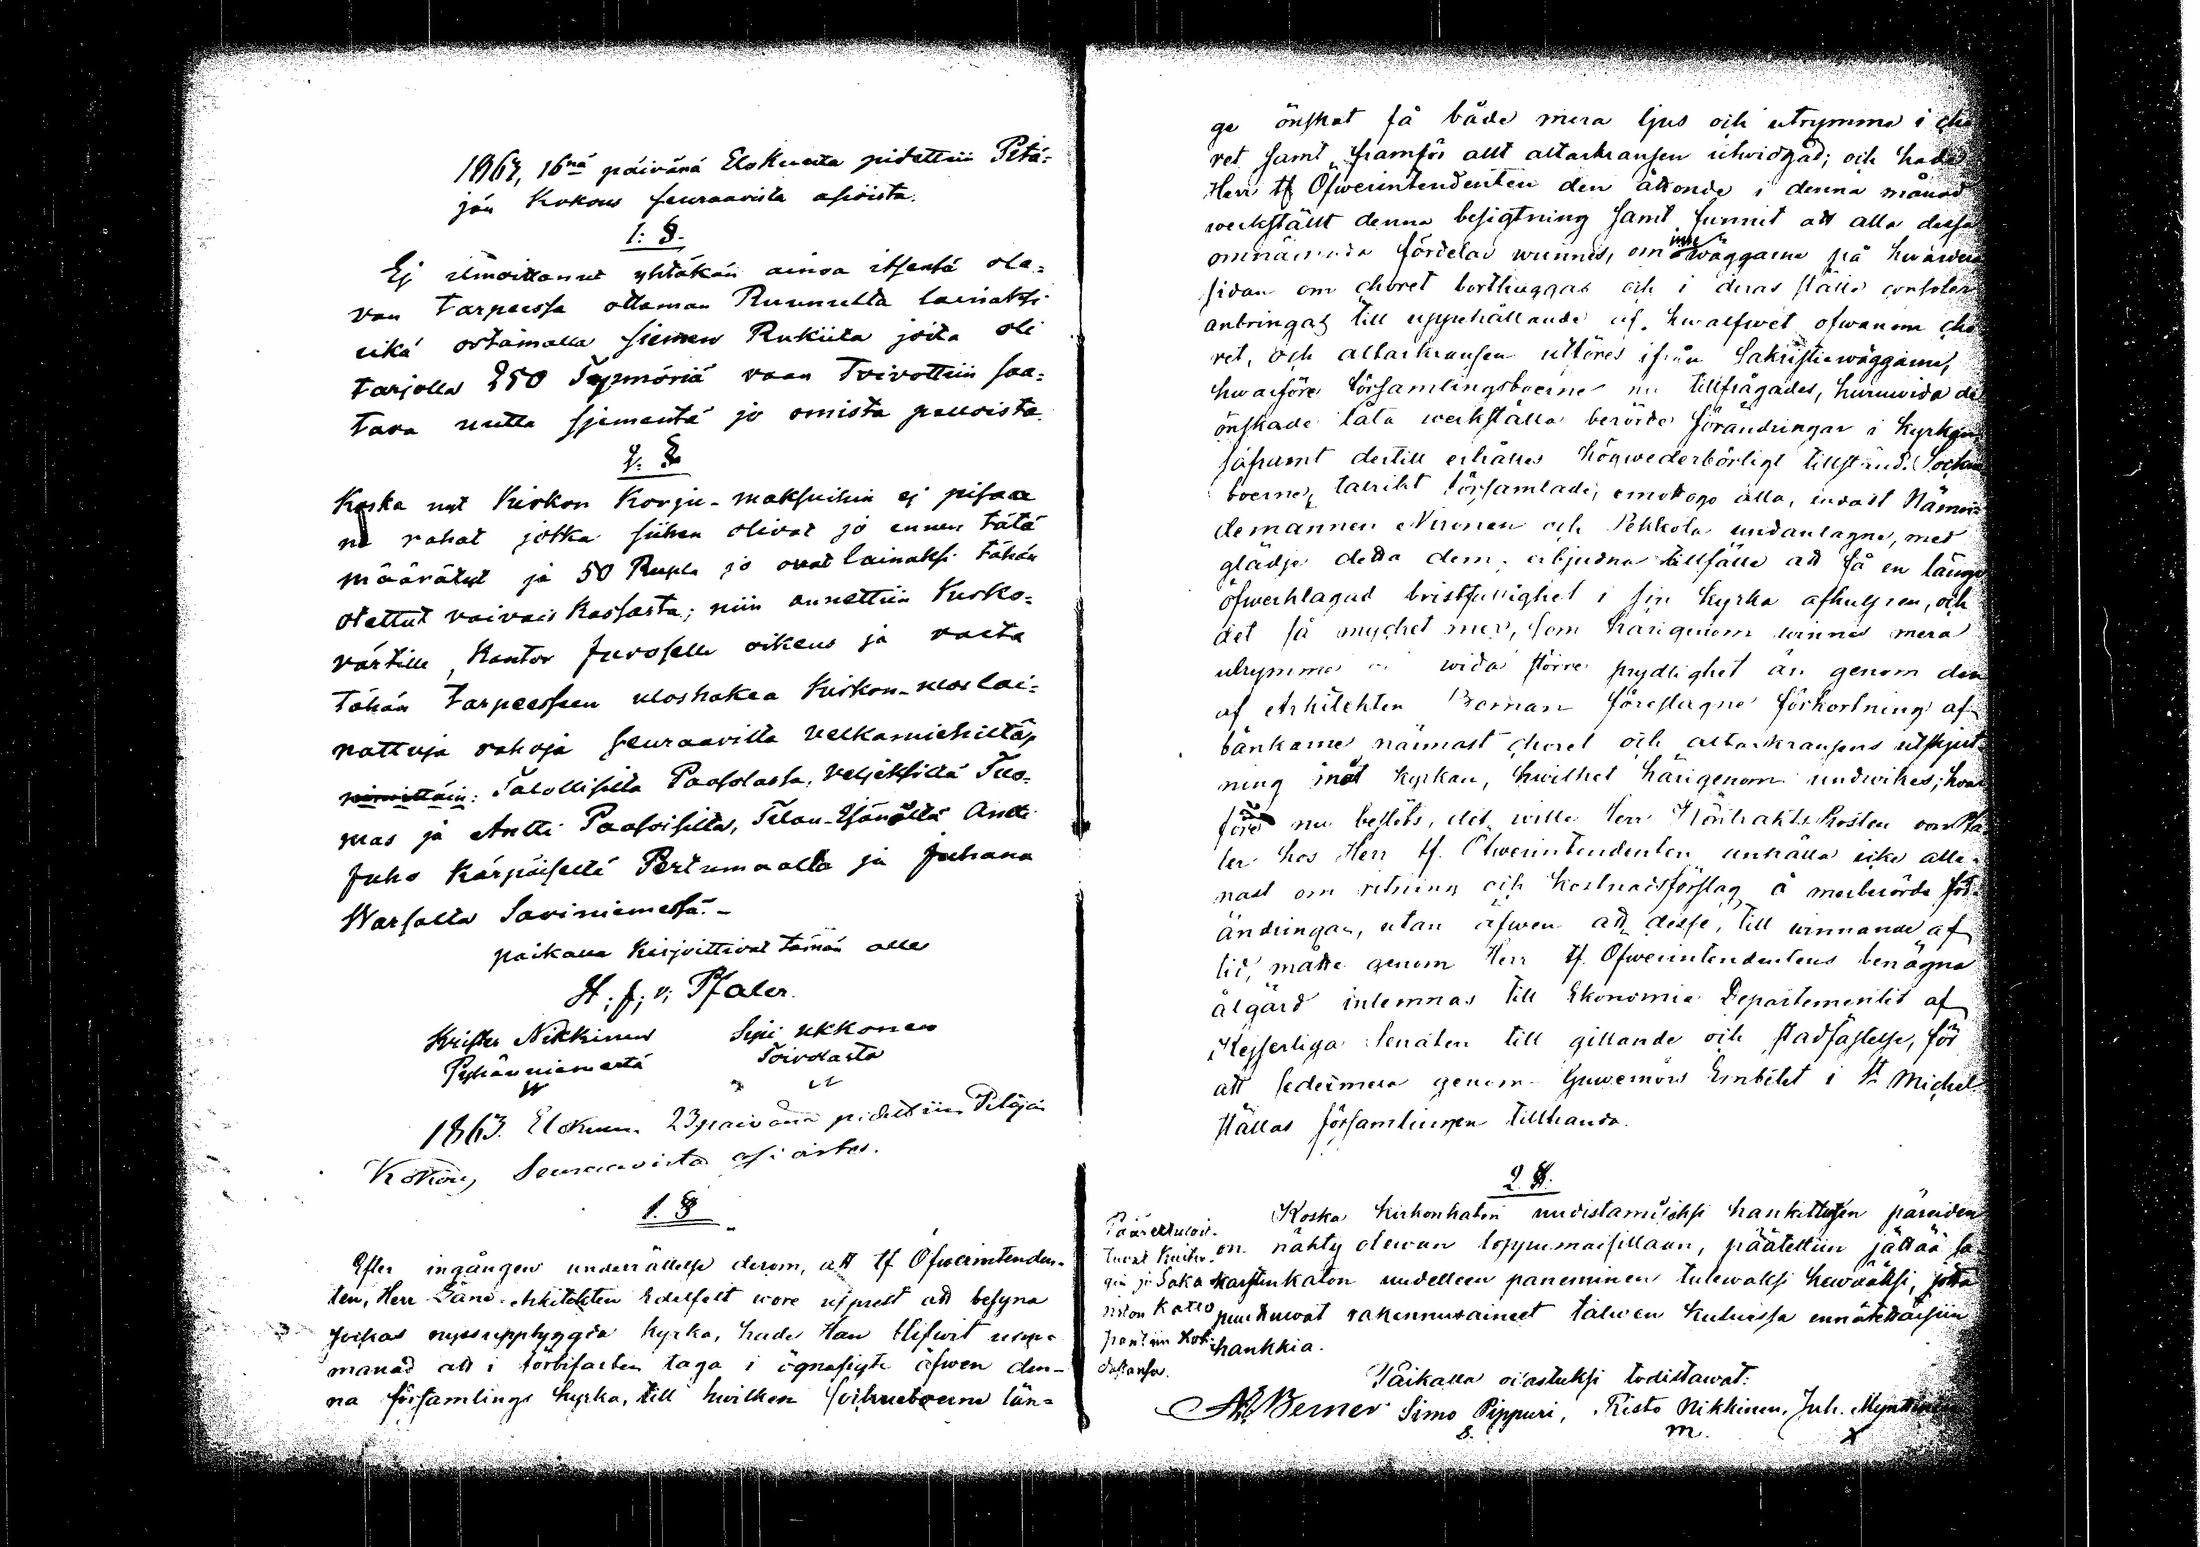 1863, 16nä päivänä Elokuuta pidettiin Pitä-
jän Kokous seuraavista asioista.
1: §.
Ej ilmoittanut yhtäkän ainoa itsensä ole-
van tarpeessa ottaman Ruunulta lainaksi
eikä ostamalla siemen Rukiita joita oli
tarjolla 250 Tynnöriä vaan Toivottiin saa-
tava uutta sjementä jo omista pelloista.
2: §
Koska nyt Kirkon Korju-maksuihin ej pisaa
ne rahat jotka siihen olivat jo ennen tätä
määrätyt ja 50 Rupla jo ovat lainaksi tähän
otettut vaivais Kassasta; niin annettiin Kirko-
värtille, Kantor Juroselle oikeus ja valta
tähän tarpeesseen uloshakea Kirkon-uloslai-
nattuja rahoja seuraavilta velkamiehiltä,
nimittäin: Talollisilta Paasolasta, veljeksillä Tuo-
mas ja Antti Paasoisilta, Tilan-Isänältä Antti
Juho Kärpäiseltä Pertumaalta ja Juhana
Warsalta Saviniemessä. -
paikalla Kirjoittivat tämän alle
H. f. v. Pfaler.
Krister Nikkinen Sipi Ukkonen
Pyhänniemestä Toivolasta
1863. Elokuun 23 paivänä pidettiin Pitäjän
Kokous, Seuraavista asioista.
1. §
Efter ingången underrättelse derom, att tf Öfwerintenden-
ten, Herr Läns-Arkitekten Edelfelt wore utsest att besyna
Jockas nyssuppbyggda kyrka, hade Han blifwit upp-
manad att i förbifarten taga i ögnasigte äfwen den-
na församlings kyrka, till hwilken sockneboerne län-
ge önskat få både mera ljus och utrymme i cho-
ret samt framför allt altarkransen utwidgad; och hade
Herr tf Öfwerintendenten den åttonde i denna månad
werkställt denna besigtning samt funnit att alla dessa
omnämnda fördelar wunnes, om inre wäggarne på hwardera
sidan om choret borthuggas och i deras ställe consoler
anbringas till uppehållande af hwalfwet ofwanom cho-
ret, och altarkransen utföres ifrån Sakristiewäggarne,
hwarföre församlingsboerne nu tillfrågades, huruwida de
önskade låta werkställa berörde förändringar i kyrkan,
såframt dertill erhålles högwederbörligt tillstånd. Sockne-
boerne, talrikt församlade, emottogo alla, endast Nämn-
demannen Nironen och Pekkola undantagne, med
glädje detta dem erbjudna tillfälle att få en länge
öfwerklagad bristfällighet i sin kyrka afhulpen, och
det så mycket mer, som härigenom winnes mera
utrymme wida större prydlighet än genom den
af Arkitekten Boman föreslagne förkortning af
bänkarne närmast choret och altarkransens utskjut-
ning inåt kyrkan, hwilket härigenom undwikes; hvar-
före nu beslöts, det wille Herr Kontrakts Prosten von Pfa-
ler hos Herr tf. Öfwerintendenten anhålla icke alle-
nast om ritning och kostnadsförslag å merberörde för-
ändringar, utan äfwen att desse, till winnande af
tid, måtte genom Herr tf. Öfwerintendentens benägna
åtgärd inlemnas till Ekonomie Departementet af
Kejserliga Senaten till gillande och stadfästelse, för
att sedermera genom Guwernörs Embetet i St Michel
ställas församlingen tillhanda.
2. §.
Koska kirkonkaton uudistamiseksi hankittujen päreiden
on nähty olewan loppumaisillaan, päätettiin jättää Sa-
karstinkaton uudelleen paneminen tulewaksi kewääksi, jotta
puuttuwat rakennusaineet talwen kuluessa ennätettäisiin
hankkia.
Paikalla oi'astuksi todistawat:
AE Berner Simo Pippuri, Risto Nikkinen, Juh. Mynttinen
S. m. X